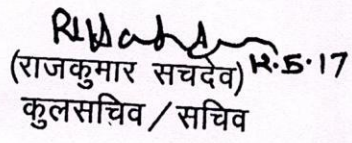 (राजकुमार सचदेव) 12.5.17
कुलसचिव / सचिव